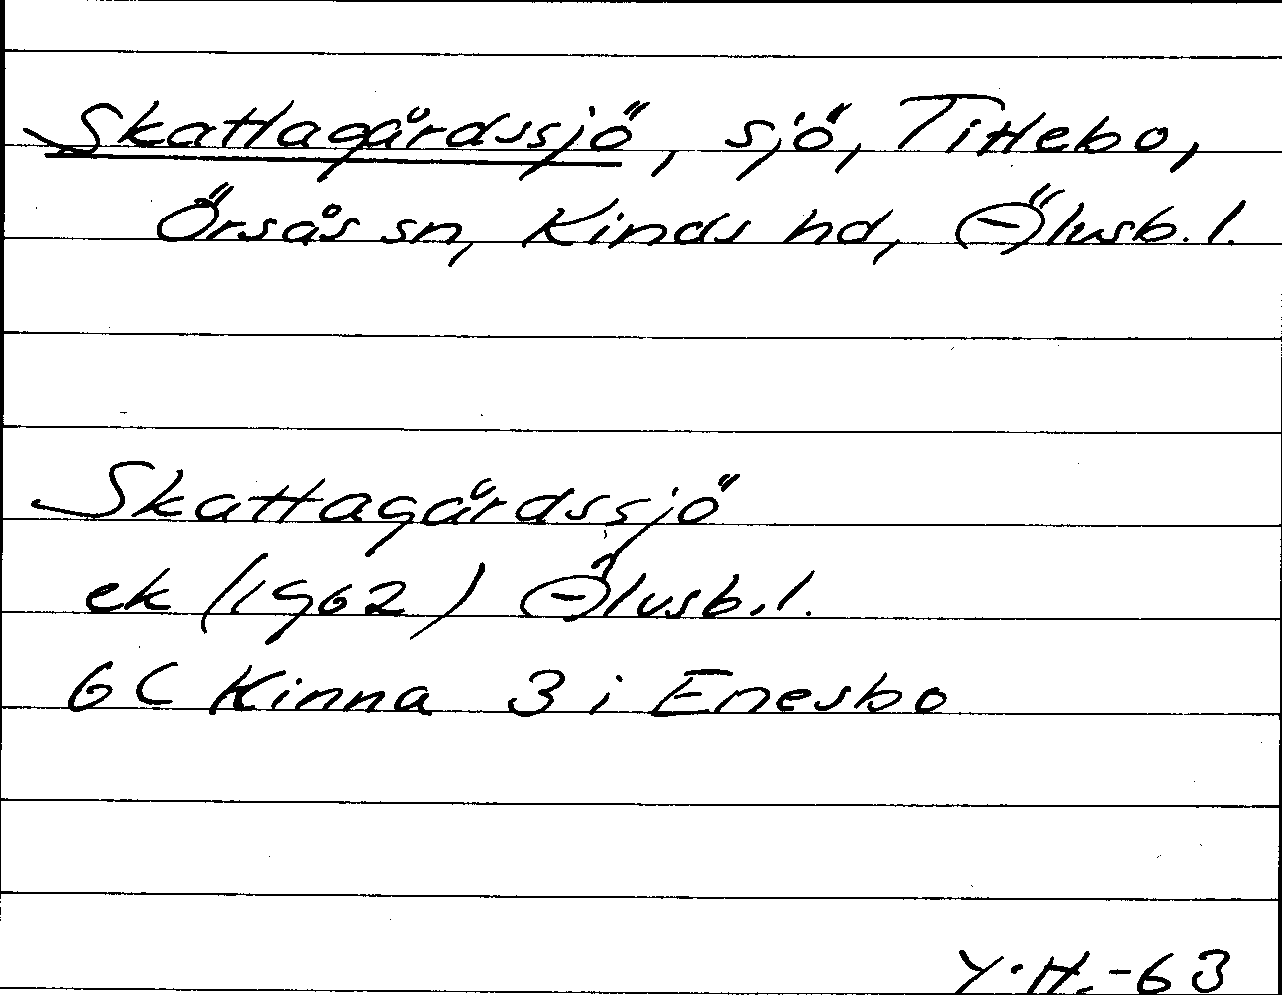 Skattagårdssjö, sjö, Tittebo,
Örsås sn, Kinds hd, Ölvsb. l.
Skattagårdssjö
ek (1962) Ölvsb. l.
6C Kinna 3 i Enesbo
Y.H.-63